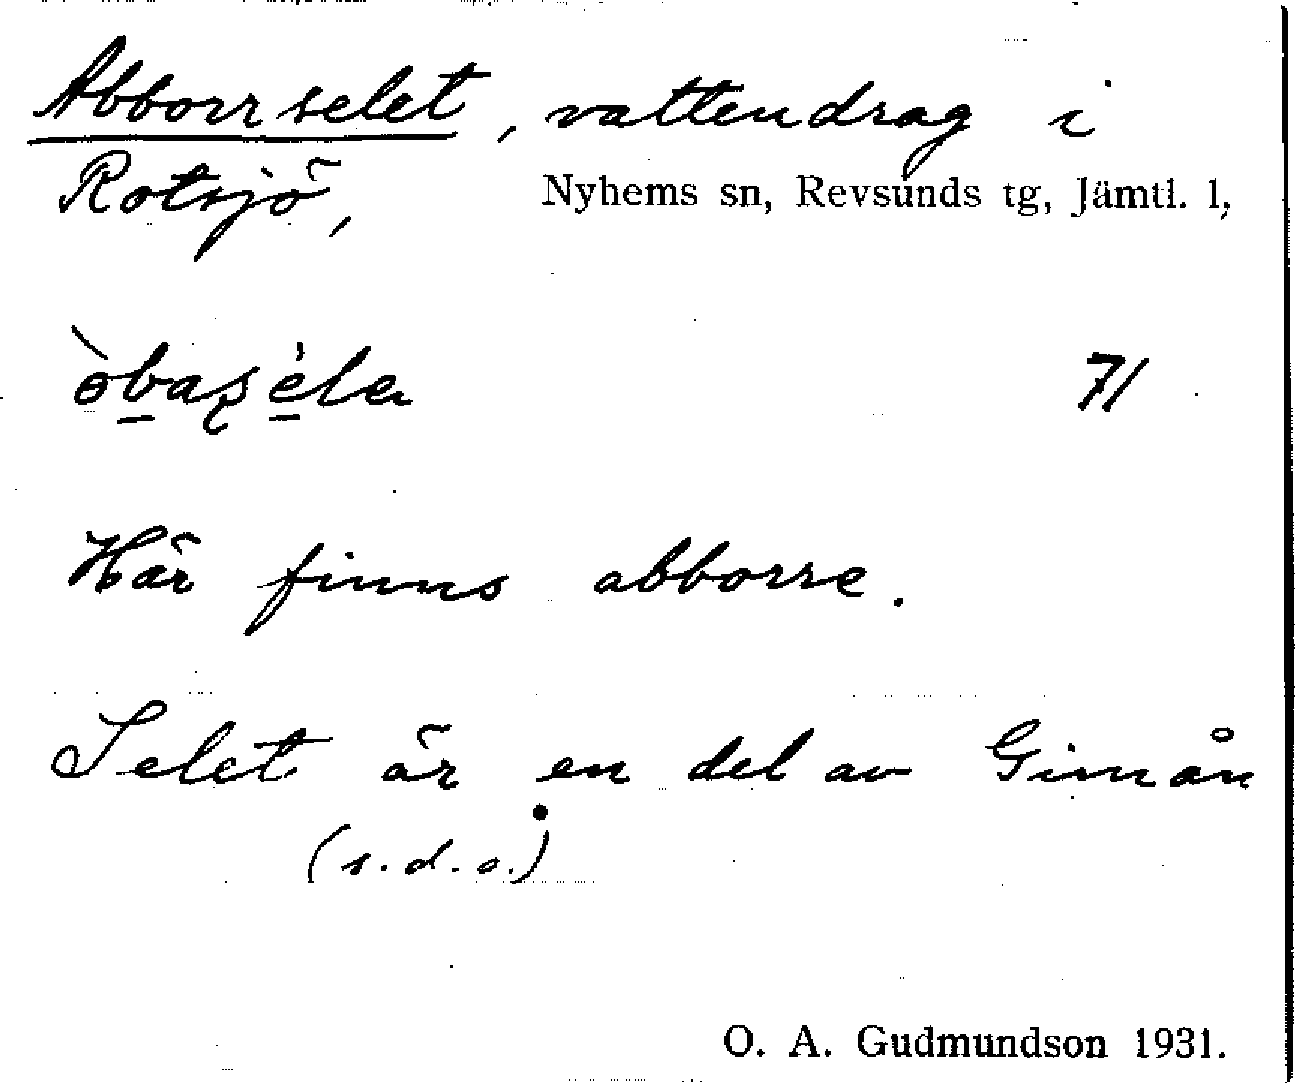 Abborrselet, vattendrag i
Rotsjö, Nyhems sn, Revsunds tg, Jämtl. l,
òbasé̀la 71
Här finns abborre.
Selet är en del av Gimån
(s.d.o.)
O. A. Gudmundson 1931.